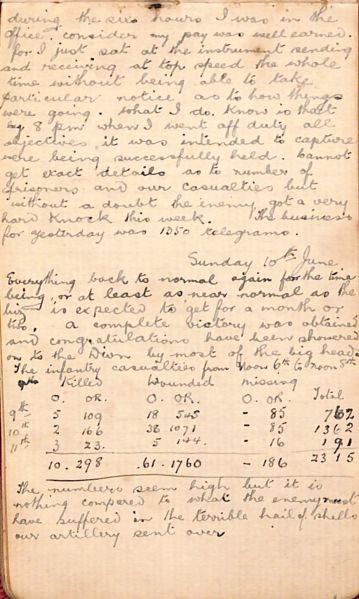 during the six hours I was in the
office, consider my pay was well earned
for I just sat at the instrument sending
and receiving at top speed the whole
time without being able to take
particular notice as to how things
were going. What I do know is that
by 8 pm when I went off duty all
objectives it was intended to capture
were being successfully held. Cannot
get exact details as to number of
prisoners and our casualties but
without a doubt the enemy got a very
hard knock this week. The business
for yesterday was 1350 telegrams.
Sunday 10th June
Everything back to normal again for the time
being, or at least as near normal as the
line is expected to get for a month or
two. A complete victory was obtained
and congratulations have been showered
on to the Divn by most of the big heads.
The infantry casualties from noon 6th to noon 8th
Killed Wounded missing
O. OR. O. OR. O. OR. Total
9th 5 109 18 545 - 85 762
10th 2 166 38 1071 - 85 1362
11th 3 23. 5 144. - 16 191
10. 298 .61. 1760 - 186 2315
The numbers seem high but it is
nothing compared to what the enemy must
have suffered in the terrible hail of shells
our artillery sent over